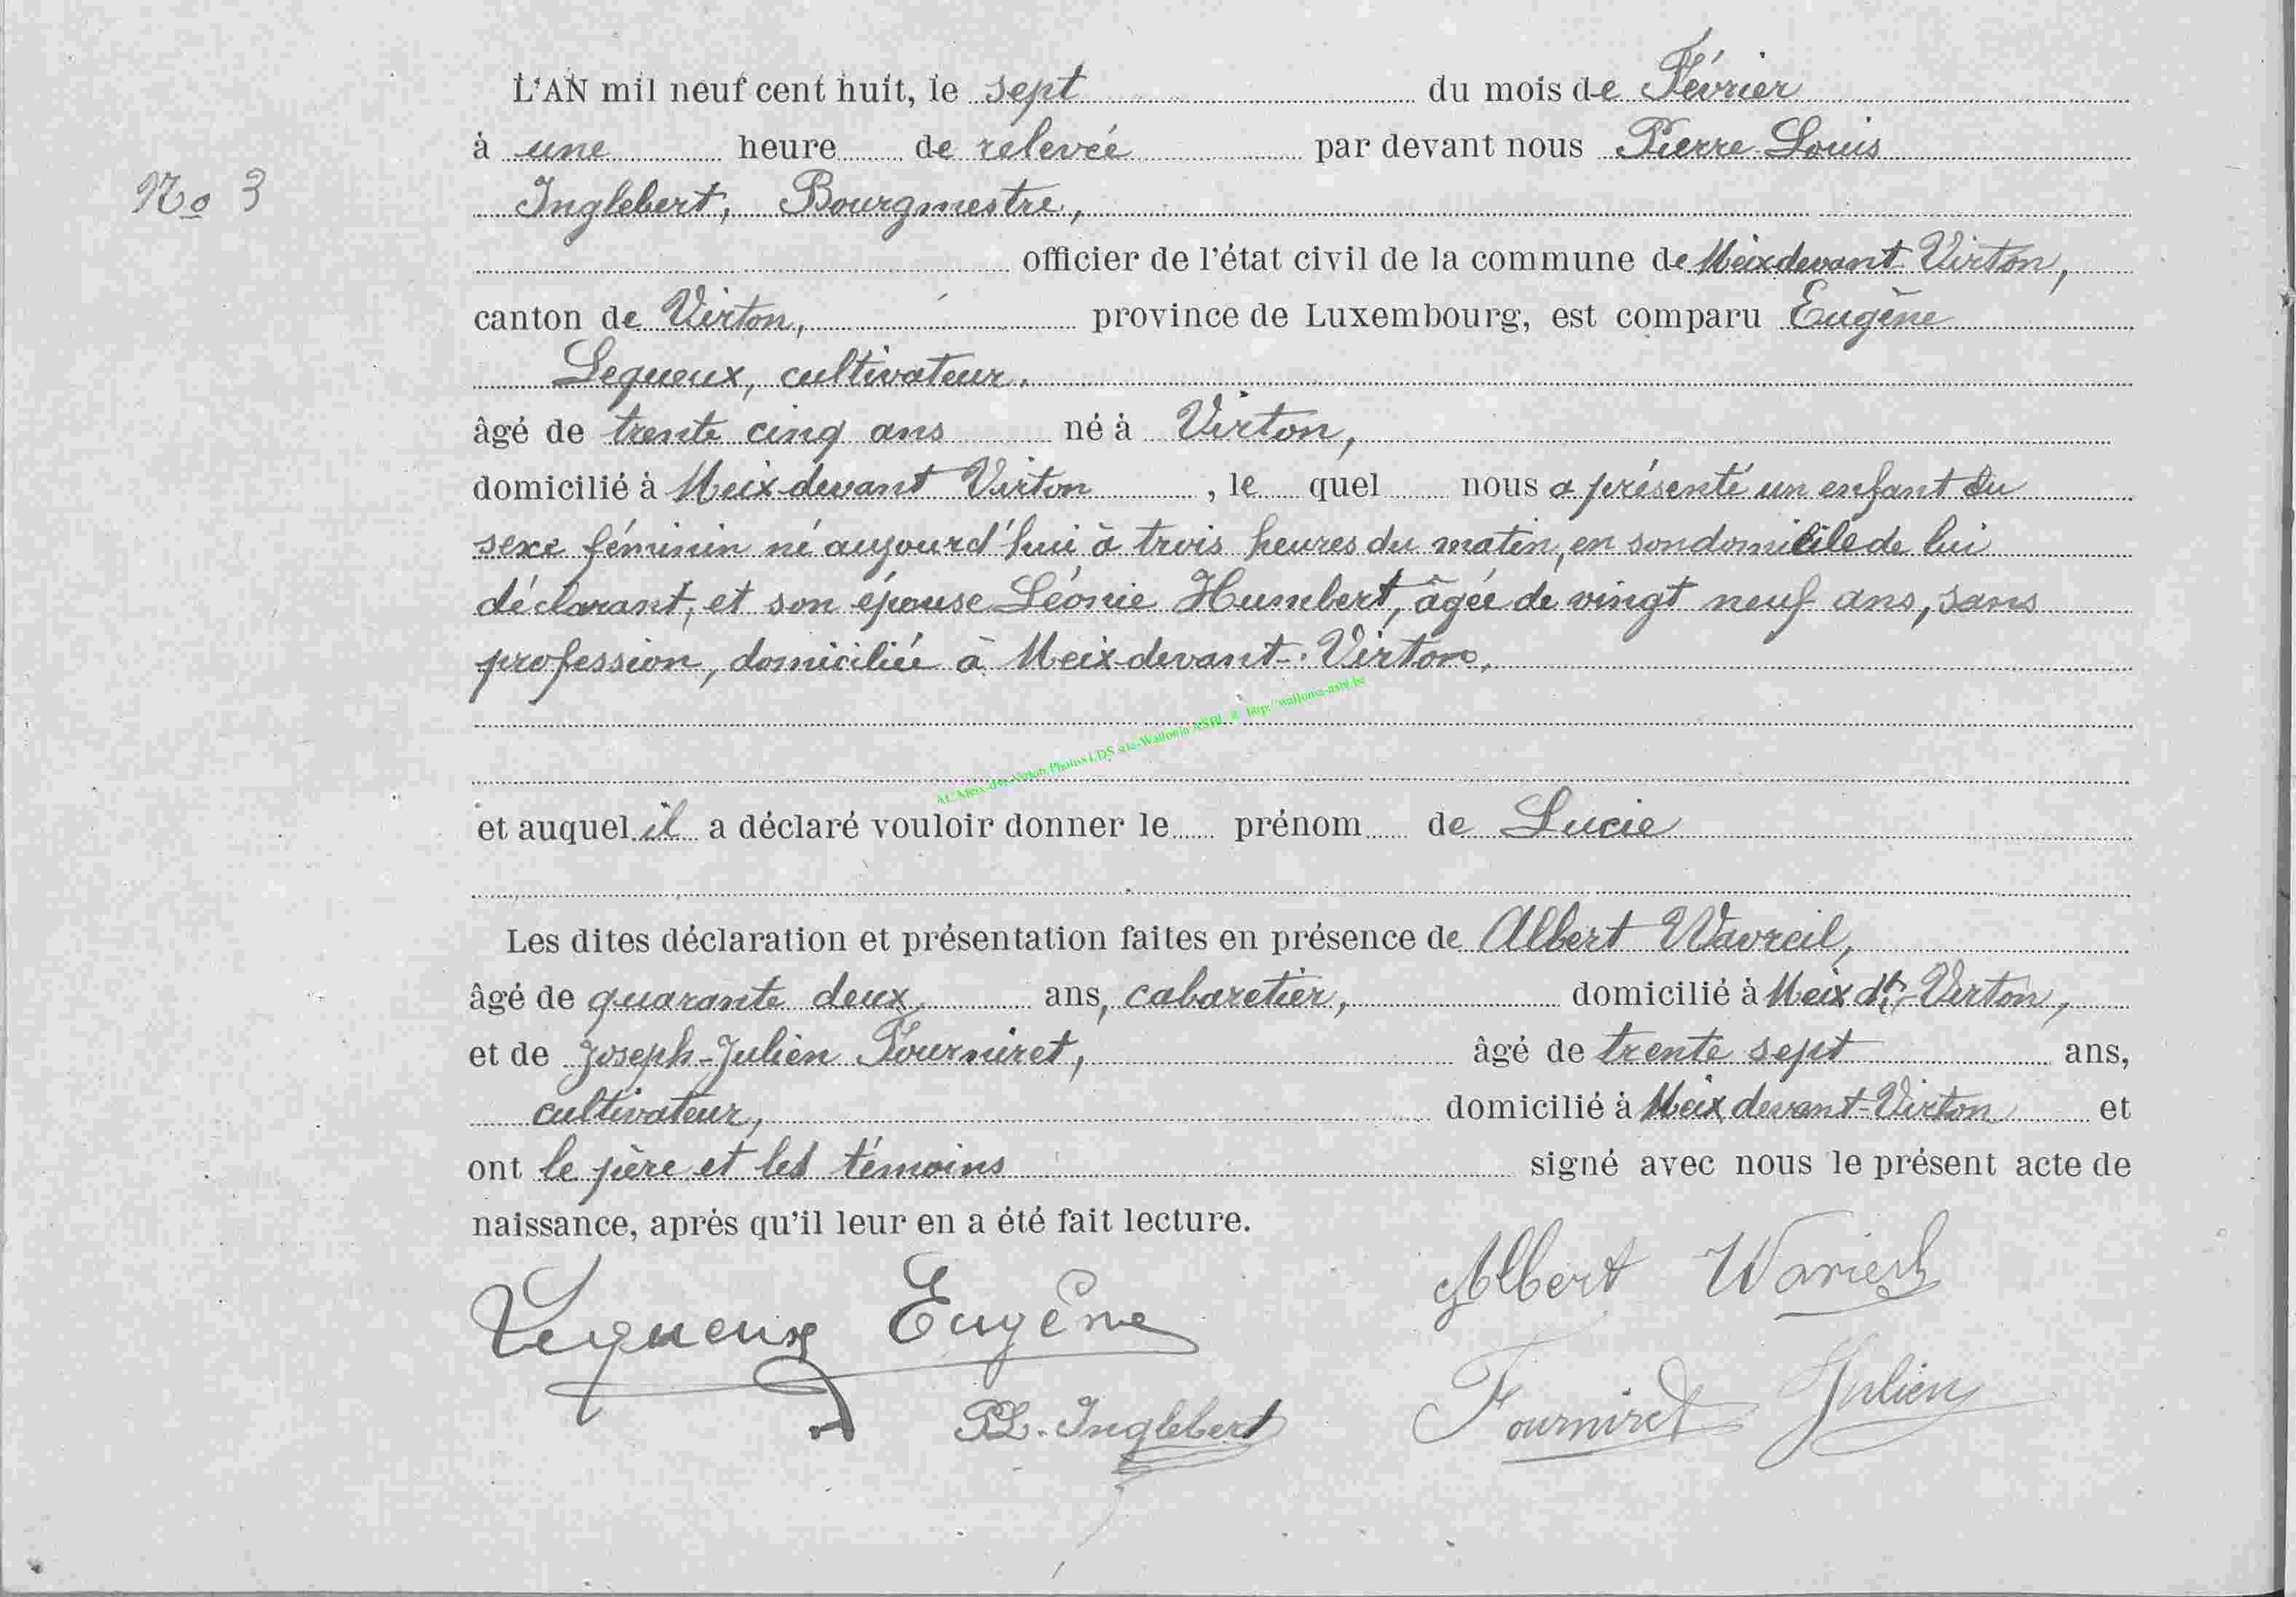 L'AN mil neuf cent huit, le sept du mois de Février
à une heure de relevée par devant nous Pierre Louis
No 3
Inglebert, Bourgmestre,
officier de l'état civil de la commune de Meix devant Virton,
canton de Virton, province de Luxembourg, est comparu Eugène
Lequeux, cultivateur,
âgé de trente cinq ans né à Virton,
domicilié à Meix-devant Virton, le quel nous a présenté un enfant du
sexe féminin né aujourd'hui à trois heures du matin, en son domicile de lui
déclarant, et son épouse Léonie Humbert, âgée de vingt neuf ans, sans
profession, domiciliée à Meix-devant-Virton.
et auquel il a déclaré vouloir donner le prénom de Lucie
Les dites déclaration et présentation faites en présence de Albert Wavreil,
âgé de quarante deux ans, cabaretier, domicilié à Meix dt-Virton,
et de Joseph-Julien Fourniret, âgé de trente sept ans,
cultivateur, domicilié à Meix devant-Virton et
ont le père et les témoins signé avec nous le présent acte de
naissance, après qu'il leur en a été fait lecture.
Albert
Lequeux Eugène
Fourniret Julien
PL. Inglebert